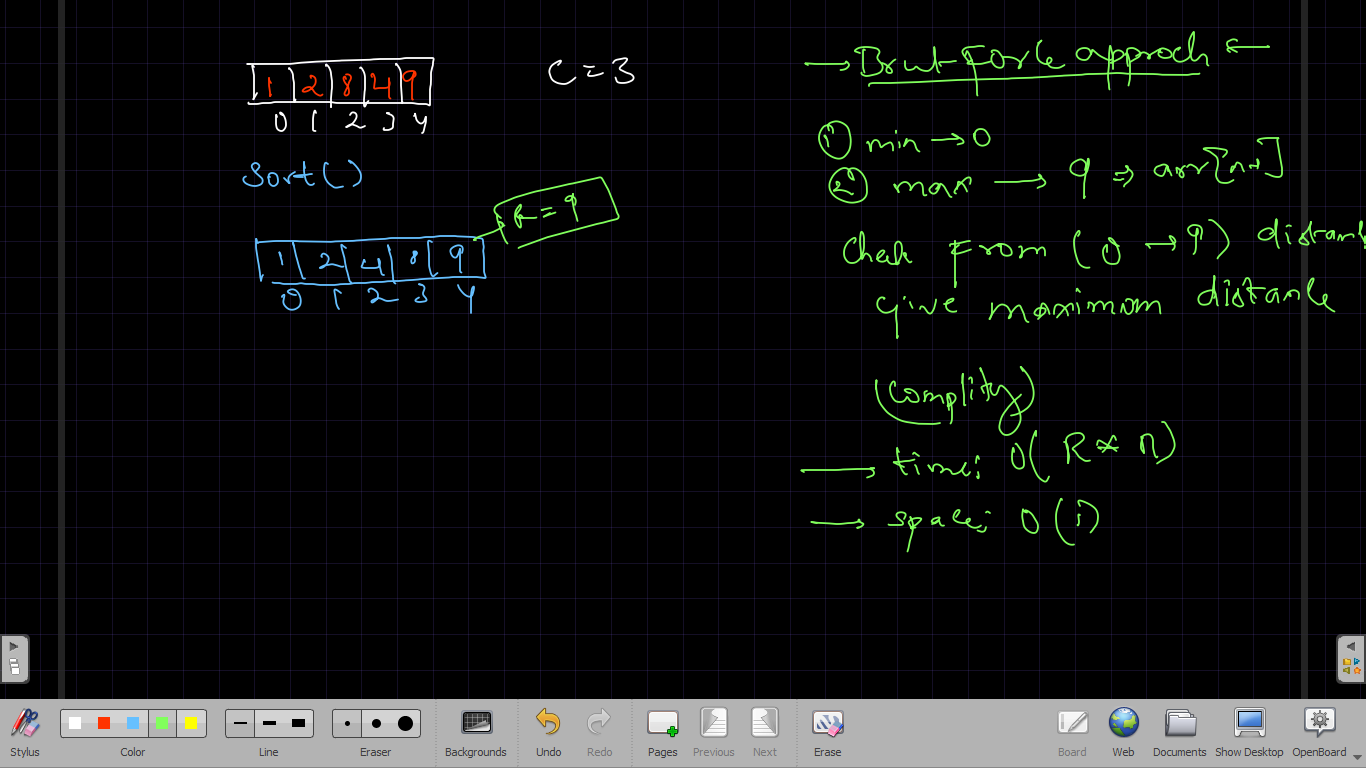 1 2 8 4 9
0 1 2 3 4
C = 3
Sort()
R = 9
1 2 4 8 9
0 1 2 3 4
→ Brut Force approch ←
① min → 0
② max → 9 => arr[n-1]
Chek From (0 → 9) distant
give maximum distance
(complity)
→ time: O(R * n)
→ space: O(1)
Stylus
Color
Line
Eraser
Backgrounds
Undo
Redo
Pages
Previous
Next
Erase
Board
Web
Documents
Show Desktop
OpenBoard